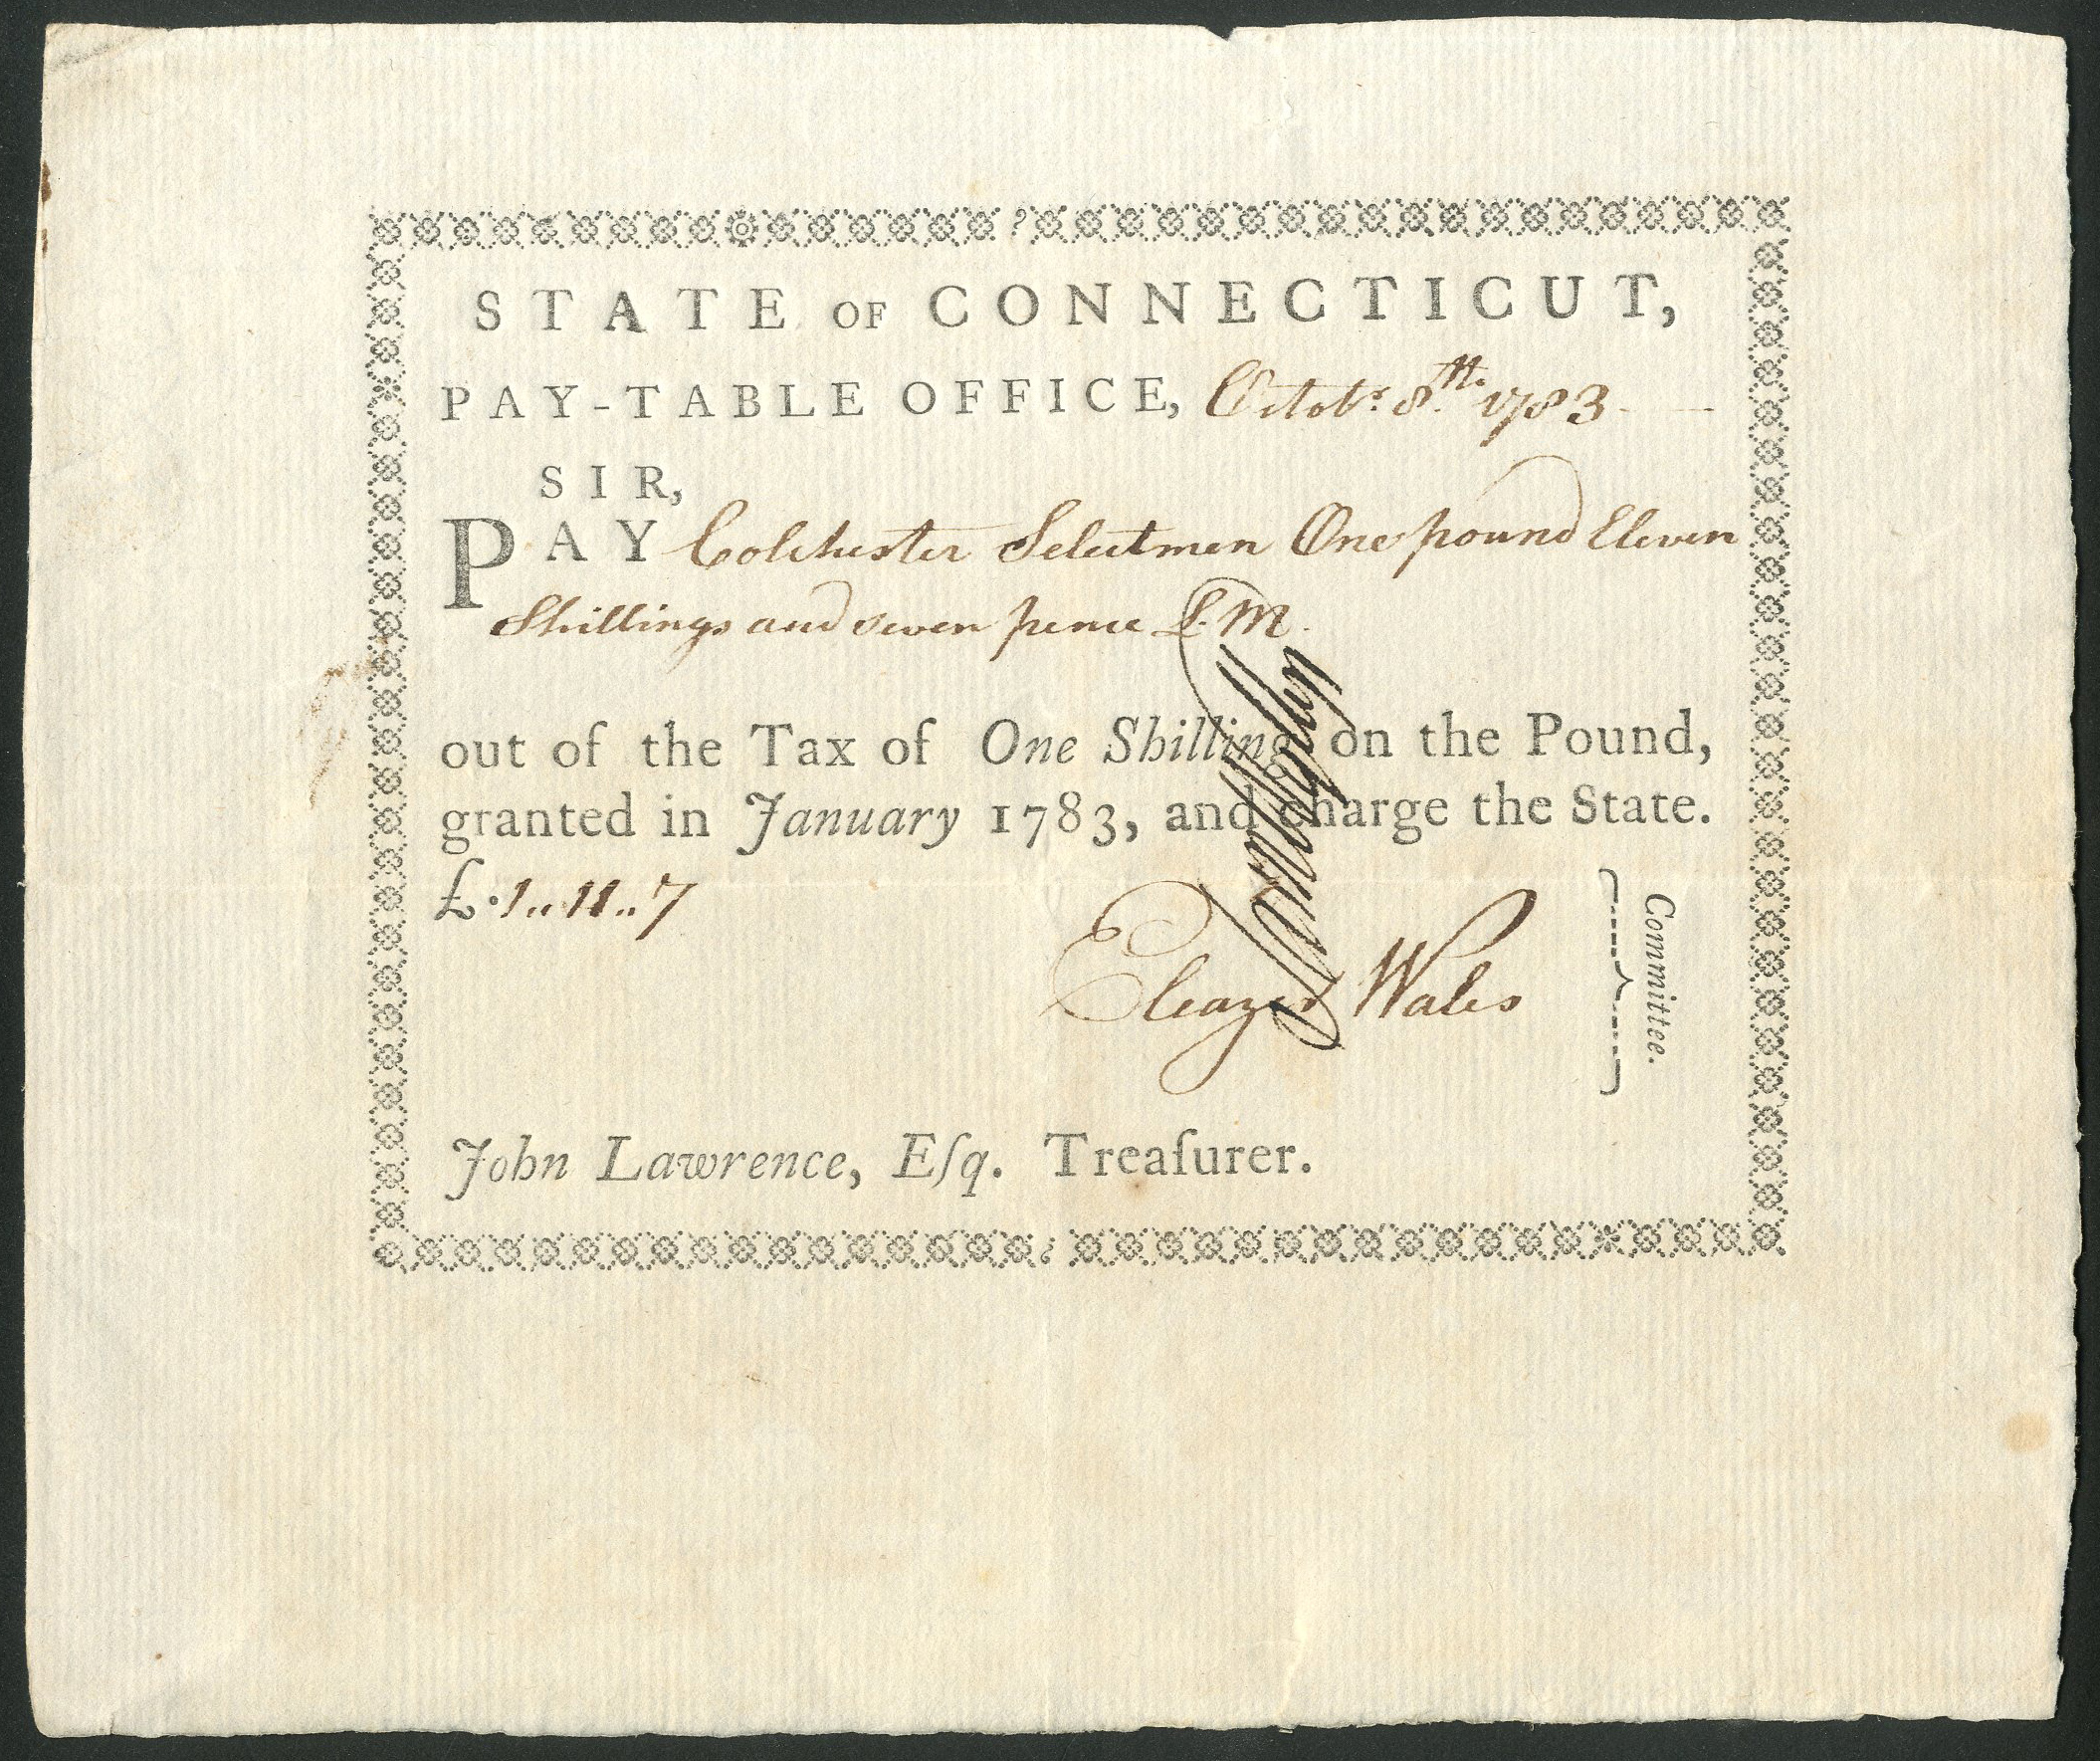 STATE OF CONNECTICUT,
PAY-TABLE OFFICE, Octobr. 8th. 1783
SIR,
PAY Colchester Selectmen One pound Eleven
Shillings and seven pence L.M.
out of the Tax of One Shilling on the Pound,
granted in January 1783, and charge the State.
£.1..11..7
Eleazer Wales
Committee.
John Lawrence, Eſq. Treaſurer.